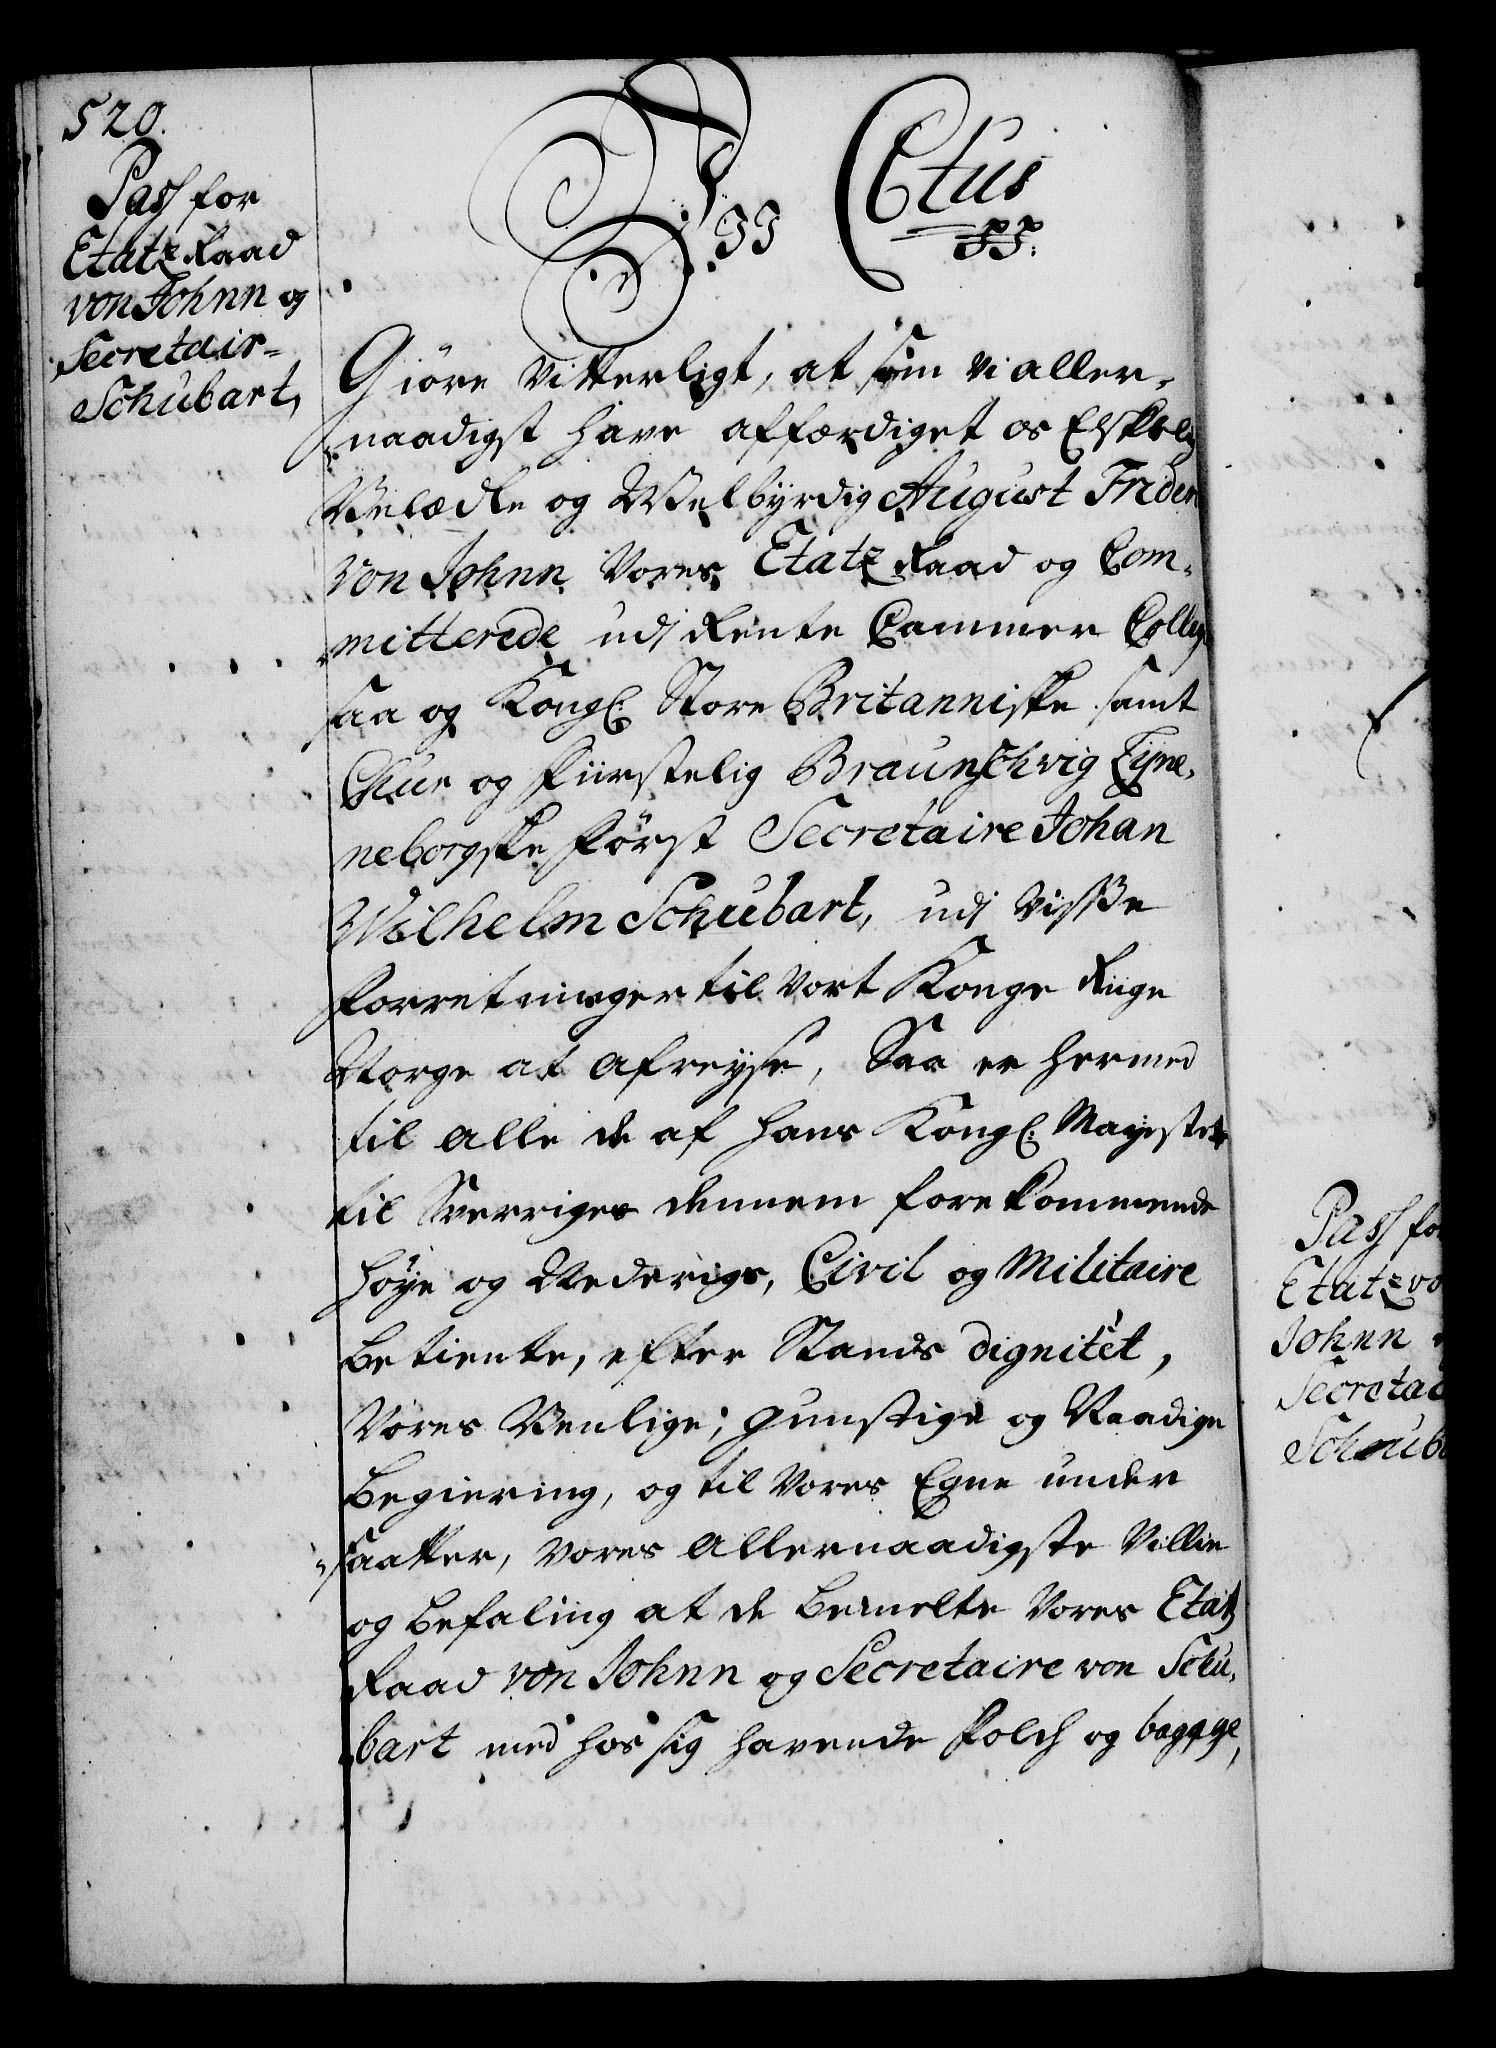 520.
Pass for
Etatz Raad
von Johnn og
Secretair
Schubart,
Ctus
pp.
Giöre vitterligt, at som vi aller-
naadigst have affærdiget os Elskelig
Velædle og Welbyrdig August Frider
von Johnn Vores Etatz Raad og Com-
mitterede udj Rente Cammer Colleg.
saa og Kongl: Store Britanniske samt
Chur og fürstelig Braunschvig Lyne-
neborgske först Secretaire Johan
Wilhelm Schubart, udj visse
forretninger til vort Konge Rige
Norge at afreyse, Saa er hermed
til alle de af hans Kongl: Mayestets
til Sverriges dennem forekommende
høye og Nederige, Civil og Militaire
betiente, efter Stands dignitet,
Vores Venlige, gunstige og Naadige
begiering, og til Vores Egne under
saatter, vores allernaadigste Villie
og befaling at de bemelte Vores Etatz
Raad von Johnn og Secretaire von Schu-
bart med hos sig havende folch og bagage,
Pass for
Etatz vo
Johnn
Secretai
Schuba